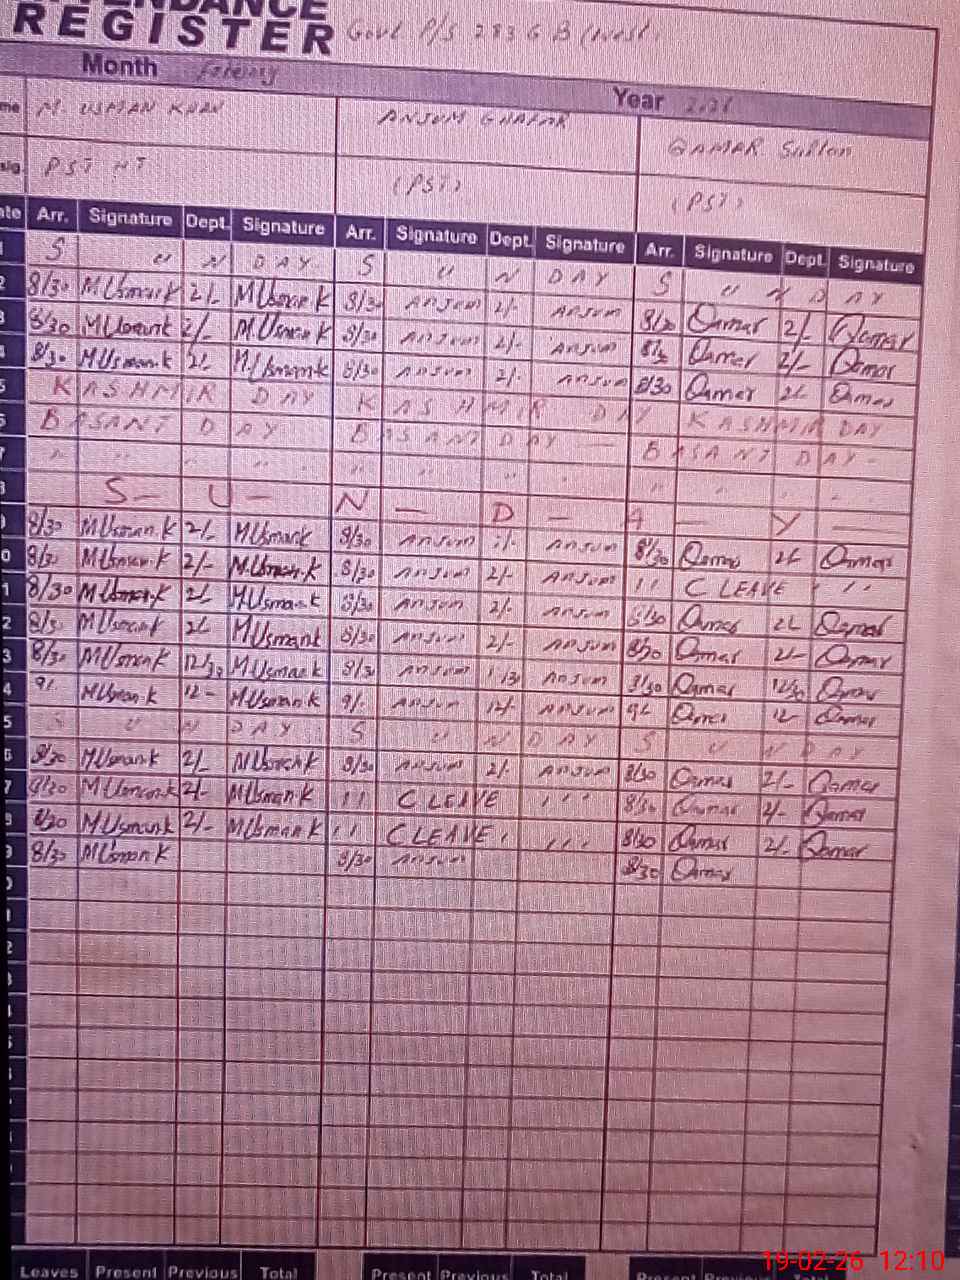 ATTENDANCE
REGISTER Govt P/S 283 G B (West)
Month
Year 2026
me M. USMAN KHAN ANJUM GHAFAR QAMAR Sultan
PST HT (PST) (PST)
ate Arr. Signature Dept. Signature Arr. Signature Dept. Signature Arr. Signature Dept. Signature
1 S U N DAY S U N DAY S U N D AY
2 8/30 MUsmank 2/- MUsmank 8/30 Anjum 2/- Anjum 8/30 Qamar 2/- Qamar
3 8/30 MUsmank 2/- M.Usmank 8/30 Anjum 2/- Anjum 8/30 Qamar 2/- Qamar
4 8/30 MUsmank 2/- M.Usmank 8/30 Anjum 2/- Anjum 8/30 Qamar 2/- Qamar
5 KASHMIR DAY KASHMIR DAY KASHMIR DAY
6 BASANT DAY BASANT DAY — BASANT DAY -
7 " " " " " " " " " " " "
8 S - U - N - D - A - Y -
9 8/30 MUsman.k 2/- MUsmank 8/30 Anjum 2/- Anjum 8/30 Qamar 2/- Qamar
0 8/30 MUsman.k 2/- M.Usman.k 8/30 Anjum 2/- Anjum 11 C LEAVE ' '
1 8/30 MUsman.k 2/- MUsmank 8/30 Anjum 2/- Anjum 8/30 Qamar 2/- Qamar
2 8/30 MUsmank 2/- MUsmank 8/30 Anjum 2/- Anjum 8/30 Qamar 2/- Qamar
3 8/30 MUsmank 12/30 MUsmank 8/30 Anjum Anjum 8/30 Qamar 12/30 Qamar
4 9/- MUsmank 12- MUsmank 9/- Anjum 12/- Anjum 9/- Qamar 12- Qamar
5 S U N DAY S U N DAY S U N DAY
6 8/30 MUsmank 2/- MUsmank 8/30 Anjum 2/- Anjum 8/30 Qamar 2/- Qamar
7 8/30 MUsmank 2/- MUsmank 11 C LEAVE ' ' ' 8/30 Qamar 2/- Qamar
8 8/30 MUsmank 2/- MUsmank 11 C LEAVE ' ' ' 8/30 Qamar 2/- Qamar
9 8/30 MUsmank 8/30 Anjum 8/30 Qamar
Leaves Present Previous Total Present Previous Total Present Previous
19-02-26 12:10